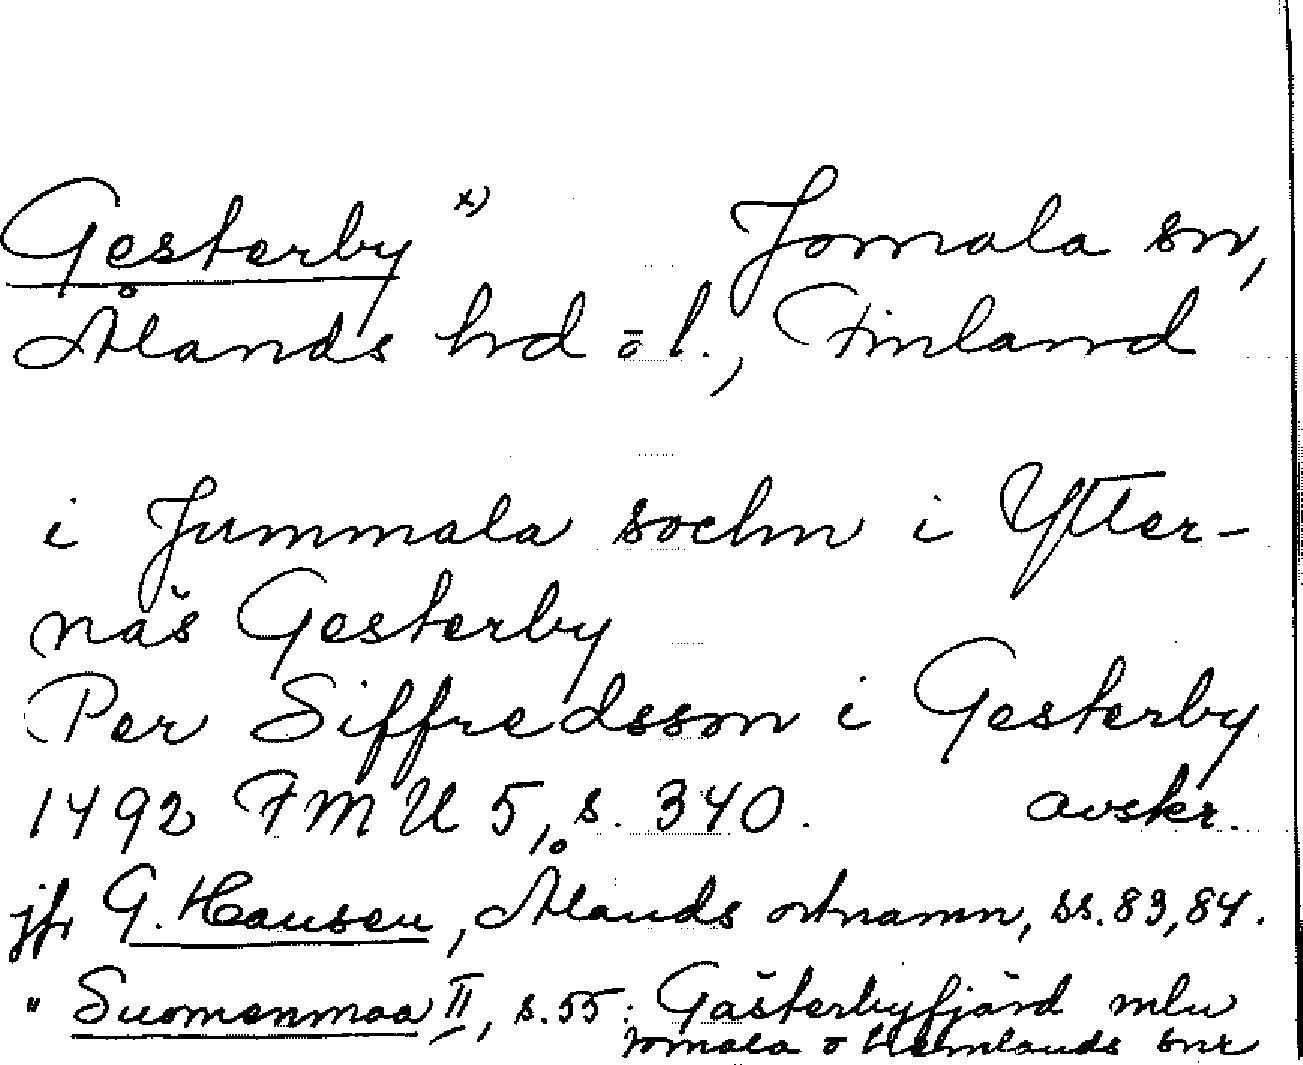 Gesterby x) Jomala sn,
Ålands hd o l., Finland
i Jummala sochn i Ytter-
näs Gesterby
Per Siffredsson i Gesterby
1492 FMU 5, s. 340. avskr.
jfr G. Hausen, Ålands ortnamn, ss. 83, 84.
" Suomenmaa II, s. 55: Gästerbyfjärd mlu
Jomala o Hemlands snr